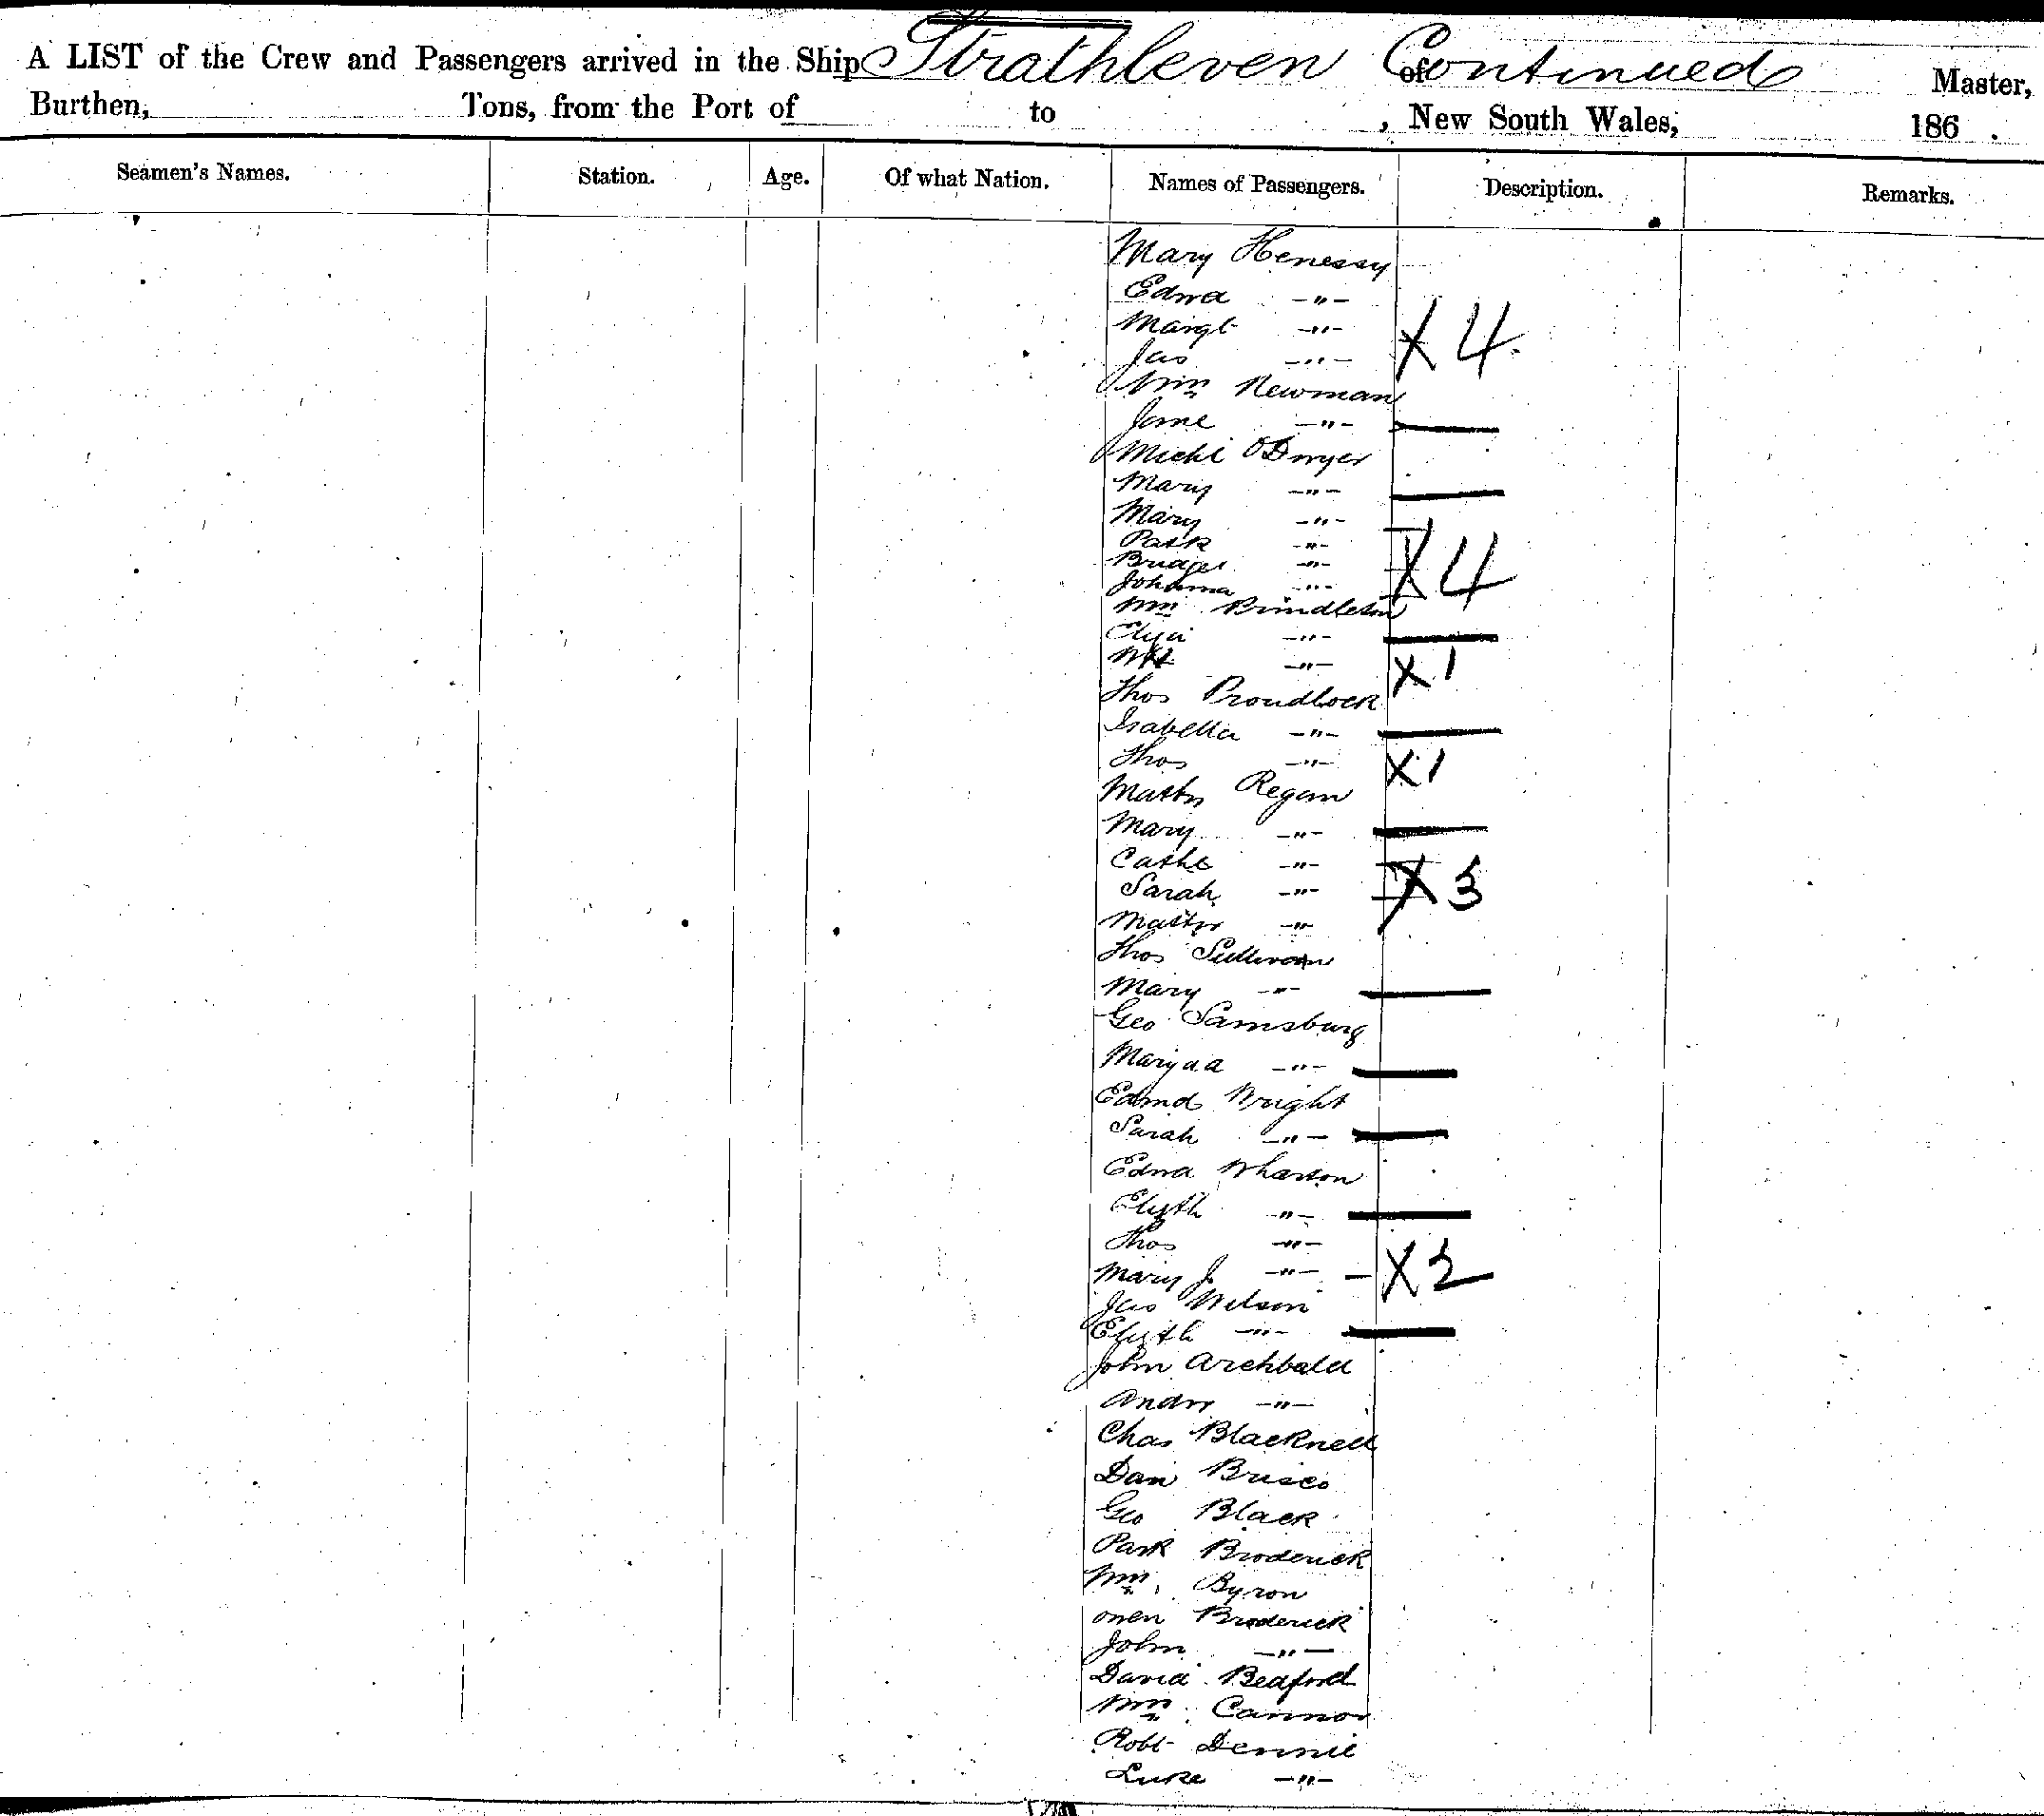 A LIST of the Crew and Passengers arrived in the Ship Strathleven of Continued Master,
Burthen, Tons, from the Port of to , New South Wales, 186 .
Seamen's Names. Station. Age. Of what Nation. Names of Passengers. Description. Remarks.
Mary Henessy
Edwd -"-
Margt -"-
Jas -"- X 4
Wm Newman
Jane -"-
Michl O'Dwyer
Mary -"-
Mary -"-
Patk -"-
Bridget -"- X 4
Johanna -"-
Wm Brindleson
Eliza -"-
-"- X 1
Thos Proudlock
Isabella -"-
Thos -"- X 1
Matthw Regan
Mary -"-
Cathe -"-
Sarah -"- X 3
Matthw -"-
Thos Sullivan
Mary -"-
Geo Samsburg
Mary a a -"-
Edmd Wright
Sarah -"-
Edwd Wharton
Elizth -"-
Thos -"-
Mary J. -"- X 2
Jas Wilson
Elizth -"-
John Archbald
Andw -"-
Chas Blacknell
Dan Brisco
Geo Black
Patk Broderick
Wm Byron
Owen Broderick
John -"-
David Bedford
Wm Cannon
Robt Dennie
Luke -"-